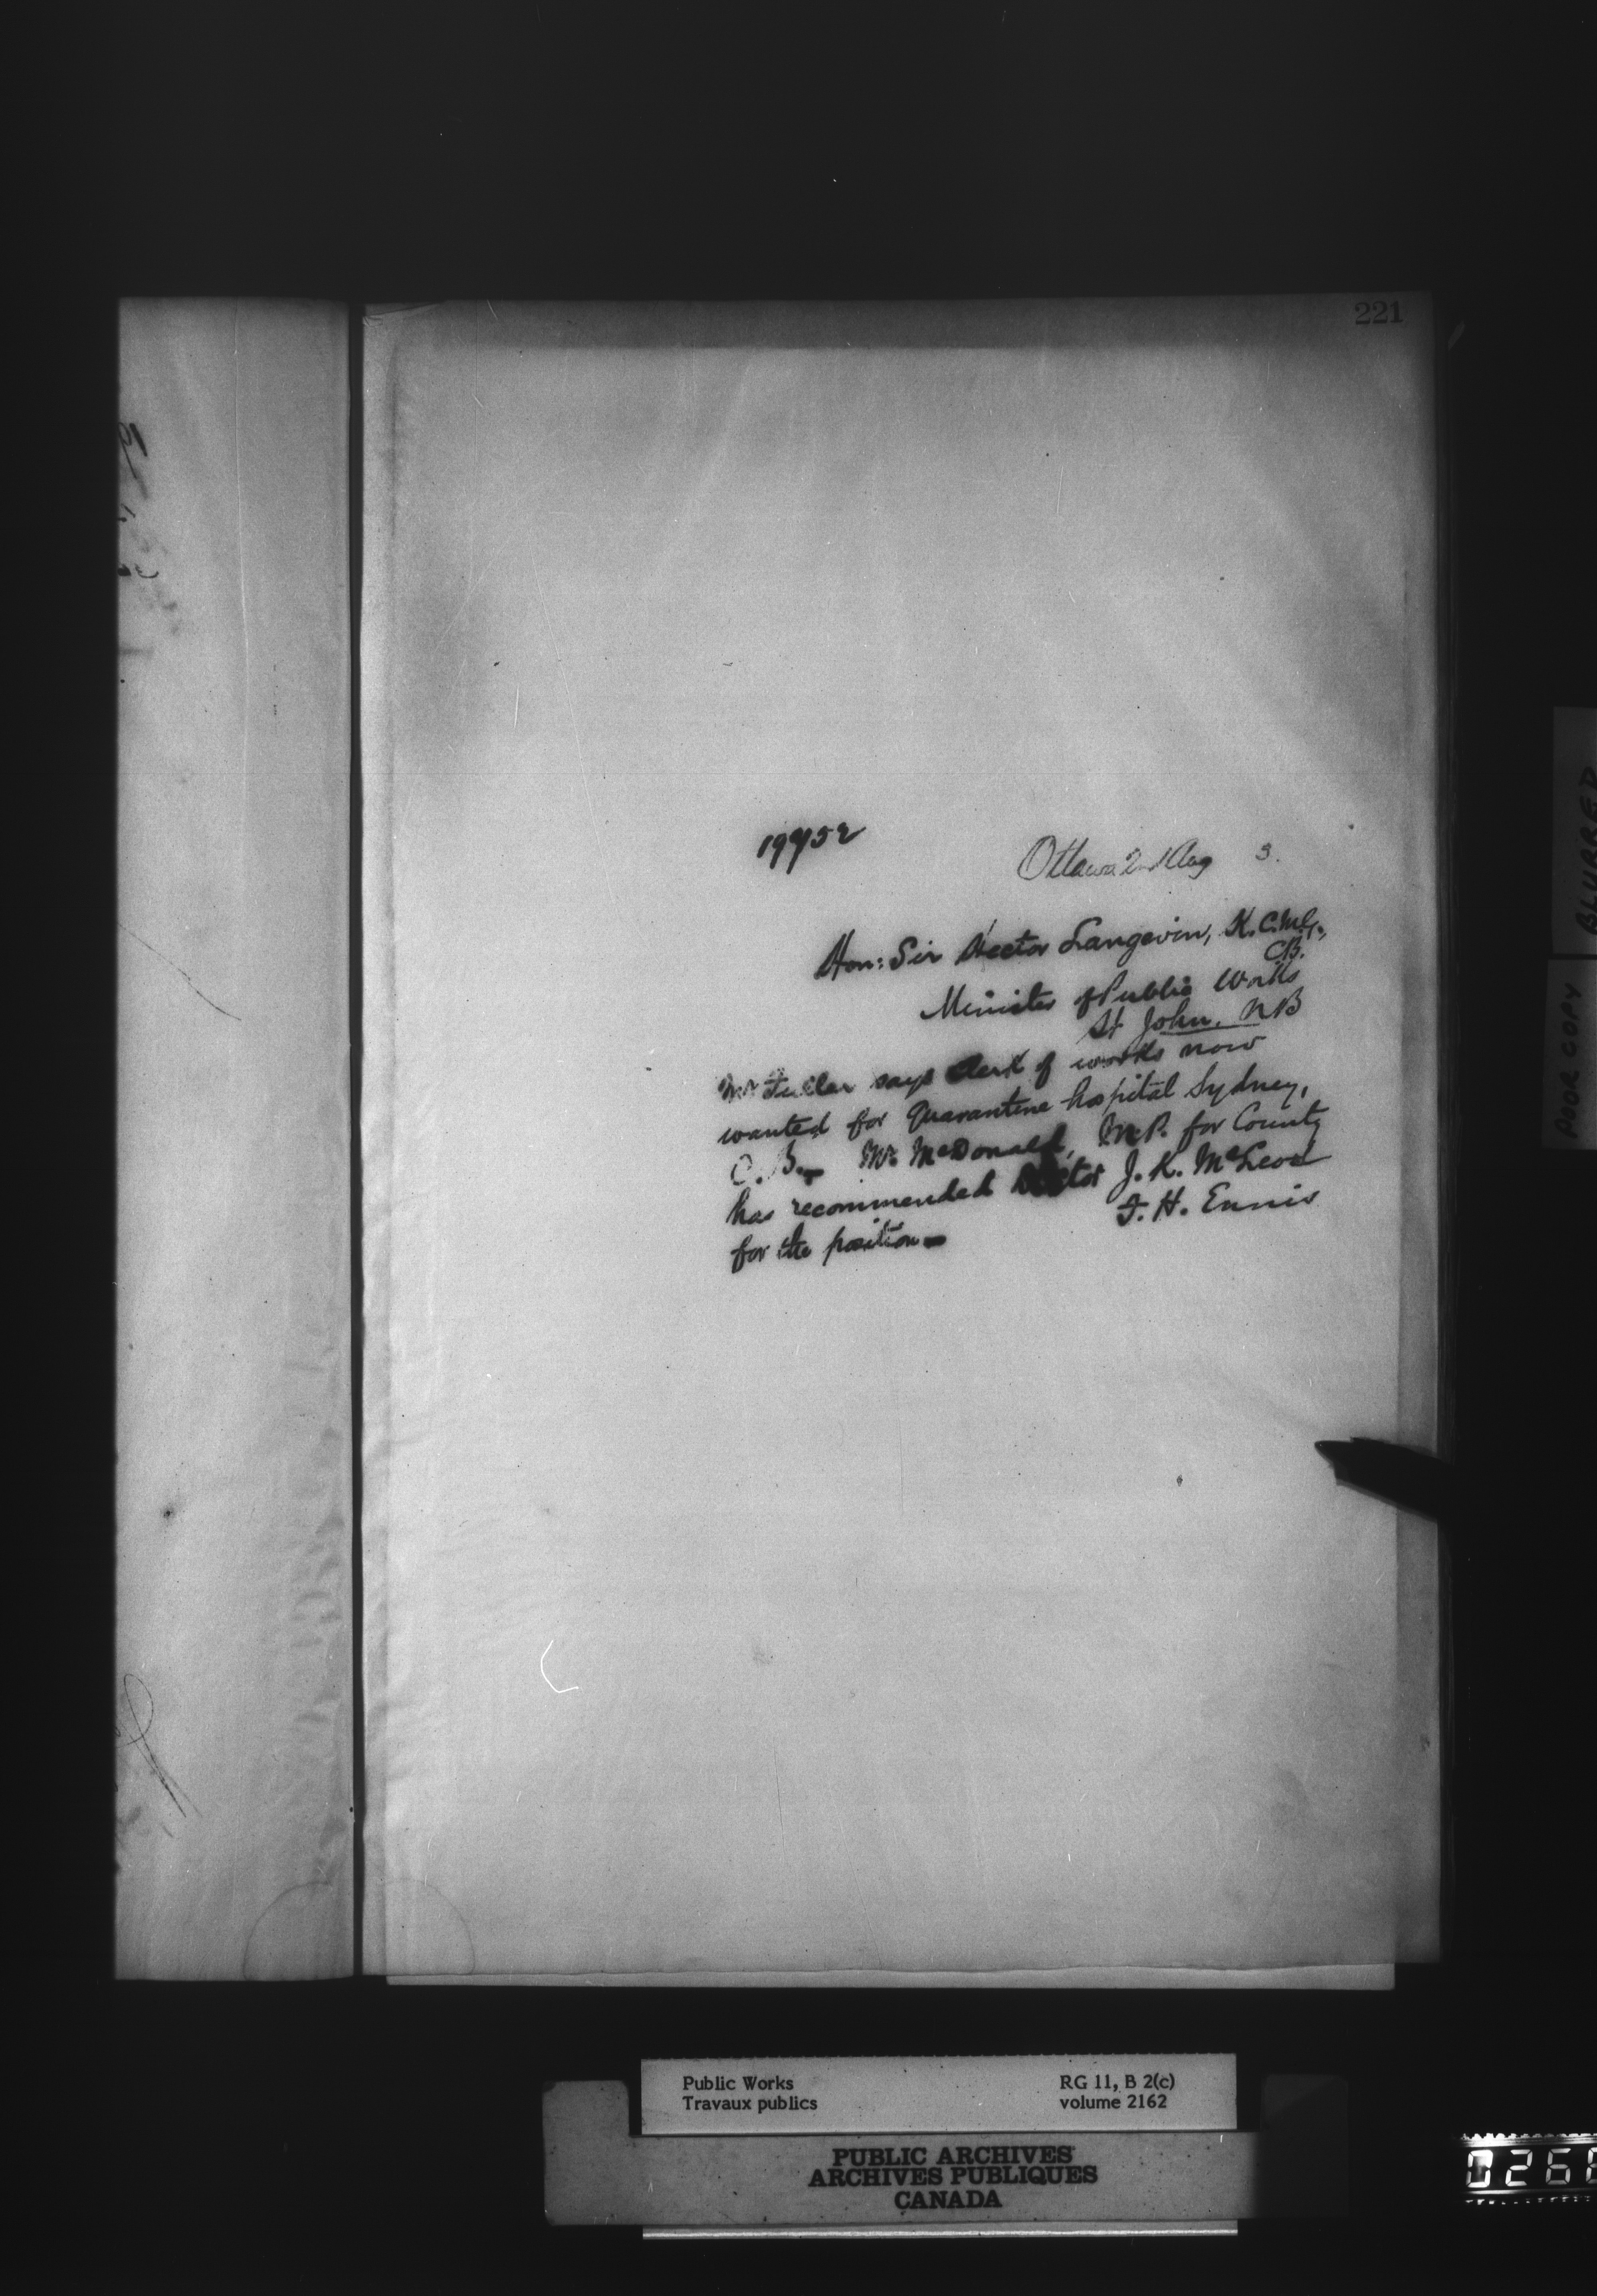 221
Ottawa 2nd Aug 3.
Hon: Sir Hector Langevin, K.C.M.G.,
C.B.
Minister of Public Works
St John, NB
Mr Fuller says Clerk of works now
wanted for Quarantine hospital Sydney,
C.B. – Mr. McDonald, M.P. for County
has recommended Doctor J. K. McLeod
for the position –
F. H. Ennis
BLURRED
POOR COPY
Public Works
Travaux publics
RG 11, B 2(c)
volume 2162
PUBLIC ARCHIVES
ARCHIVES PUBLIQUES
CANADA